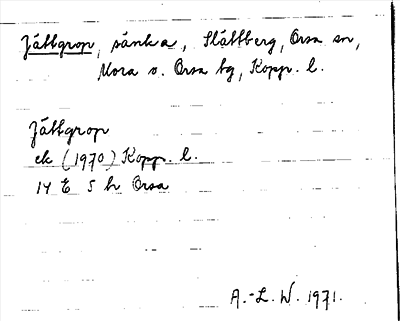 Jättgrop, sänka, Slättberg, Orsa sn,
Mora o. Orsa tg, Kopp. l.
Jättgrop
ek (1970) Kopp. l.
14 E 5 h Orsa
A.-L. W. 1971.